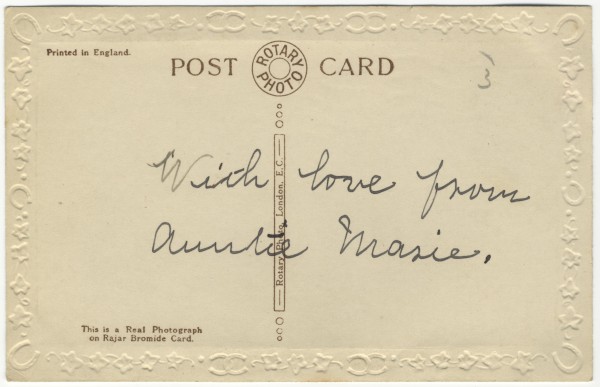 Printed in England.
POST CARD
ROTARY PHOTO
3
With love from
Auntie Masie.
Rotary Photo, London, E.C.
This is a Real Photograph
on Rajar Bromide Card.